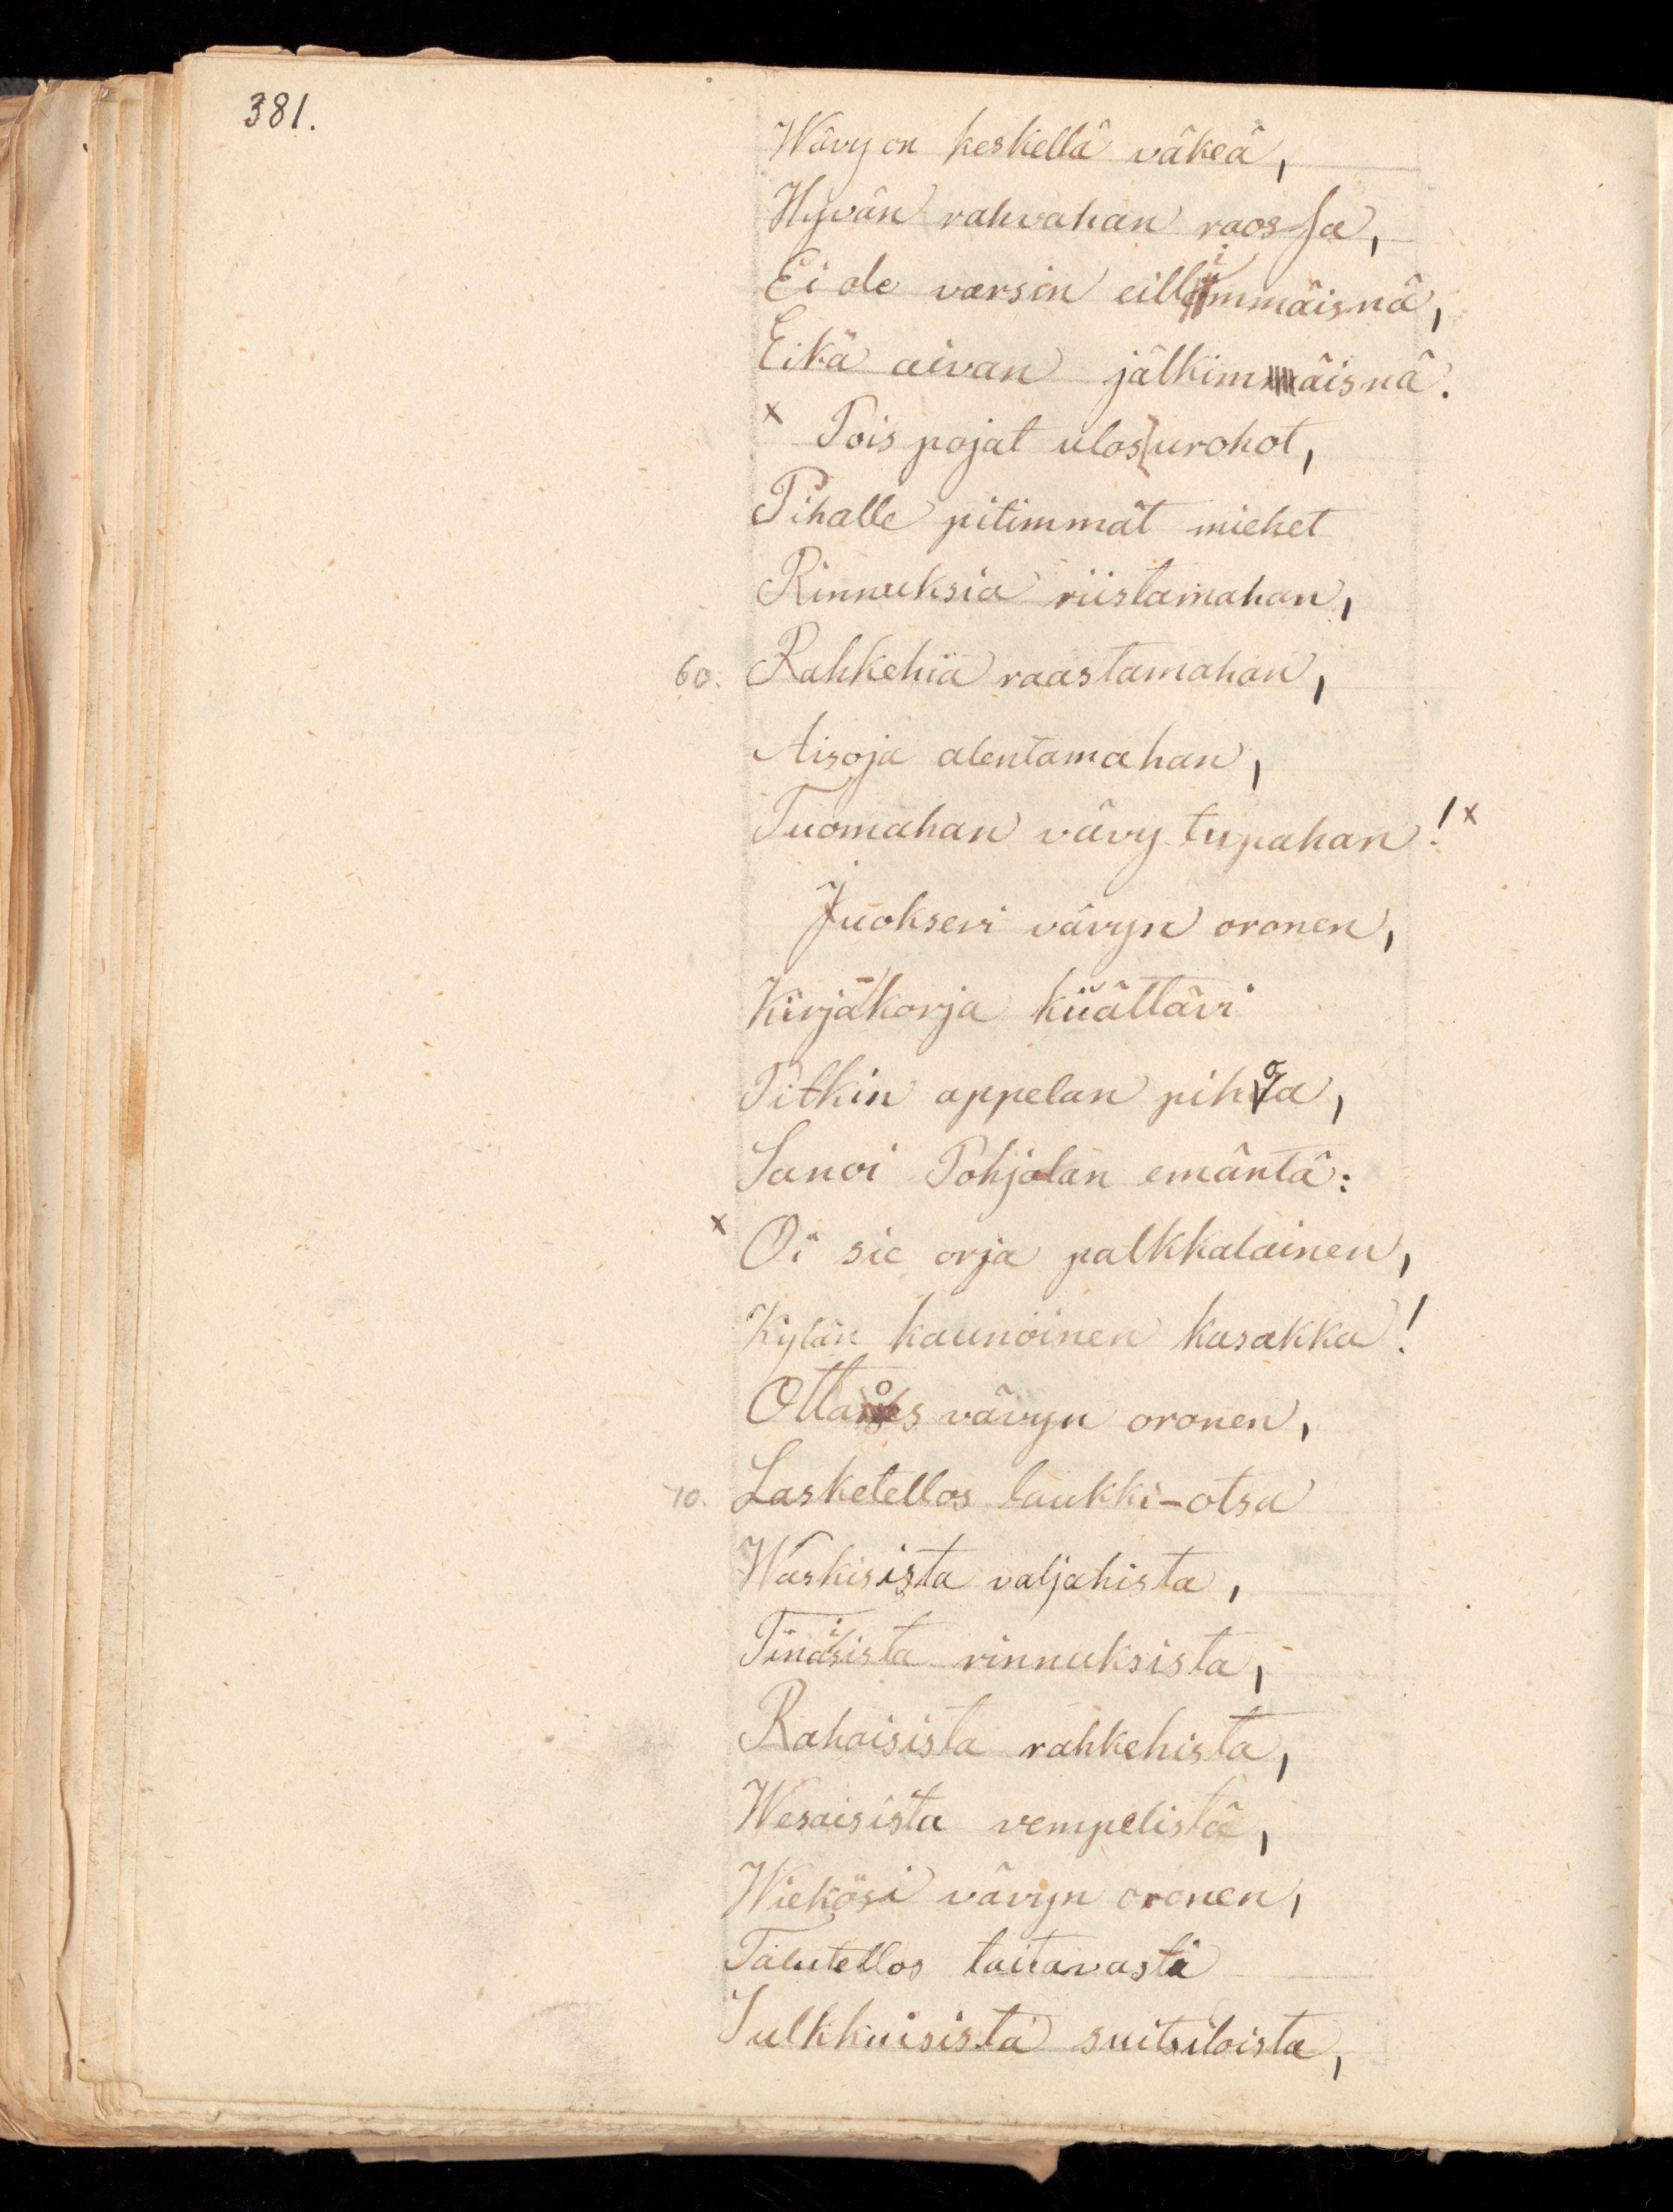 381.
Wävy on keskellä väkeä,
Hyvän rahvahan raossa,
Ei ole varsin eillimmäisnä,
Eikä aivan jälkimmäisnä.
x Pois pojat ulos urohot,
Pihalle pitimmät miehet
Rinnuksia riistamahan,
60. Rahkehia raastamahan,
Aisoja alentamahan,
Tuomahan vävy tupahan! x
Juoksevi vävyn oronen,
Kirjakorja kiiättävi
Pitkin appelan pihoa,
Sanoi Pohjolan emäntä:
x Oi sie orja palkkalainen,
Kylän kaunoinen kasakka!
Ottaos vävyn oronen,
70. Lasketellos laukki-otsa
Waskisista valjahista,
Tinaisista rinnuksista,
Rahaisista rahkehista,
Wesaisista vempelistä,
Wiekösi vävyn oronen,
Talutellos taitavasti
Sulkkuisista suitsiloista,